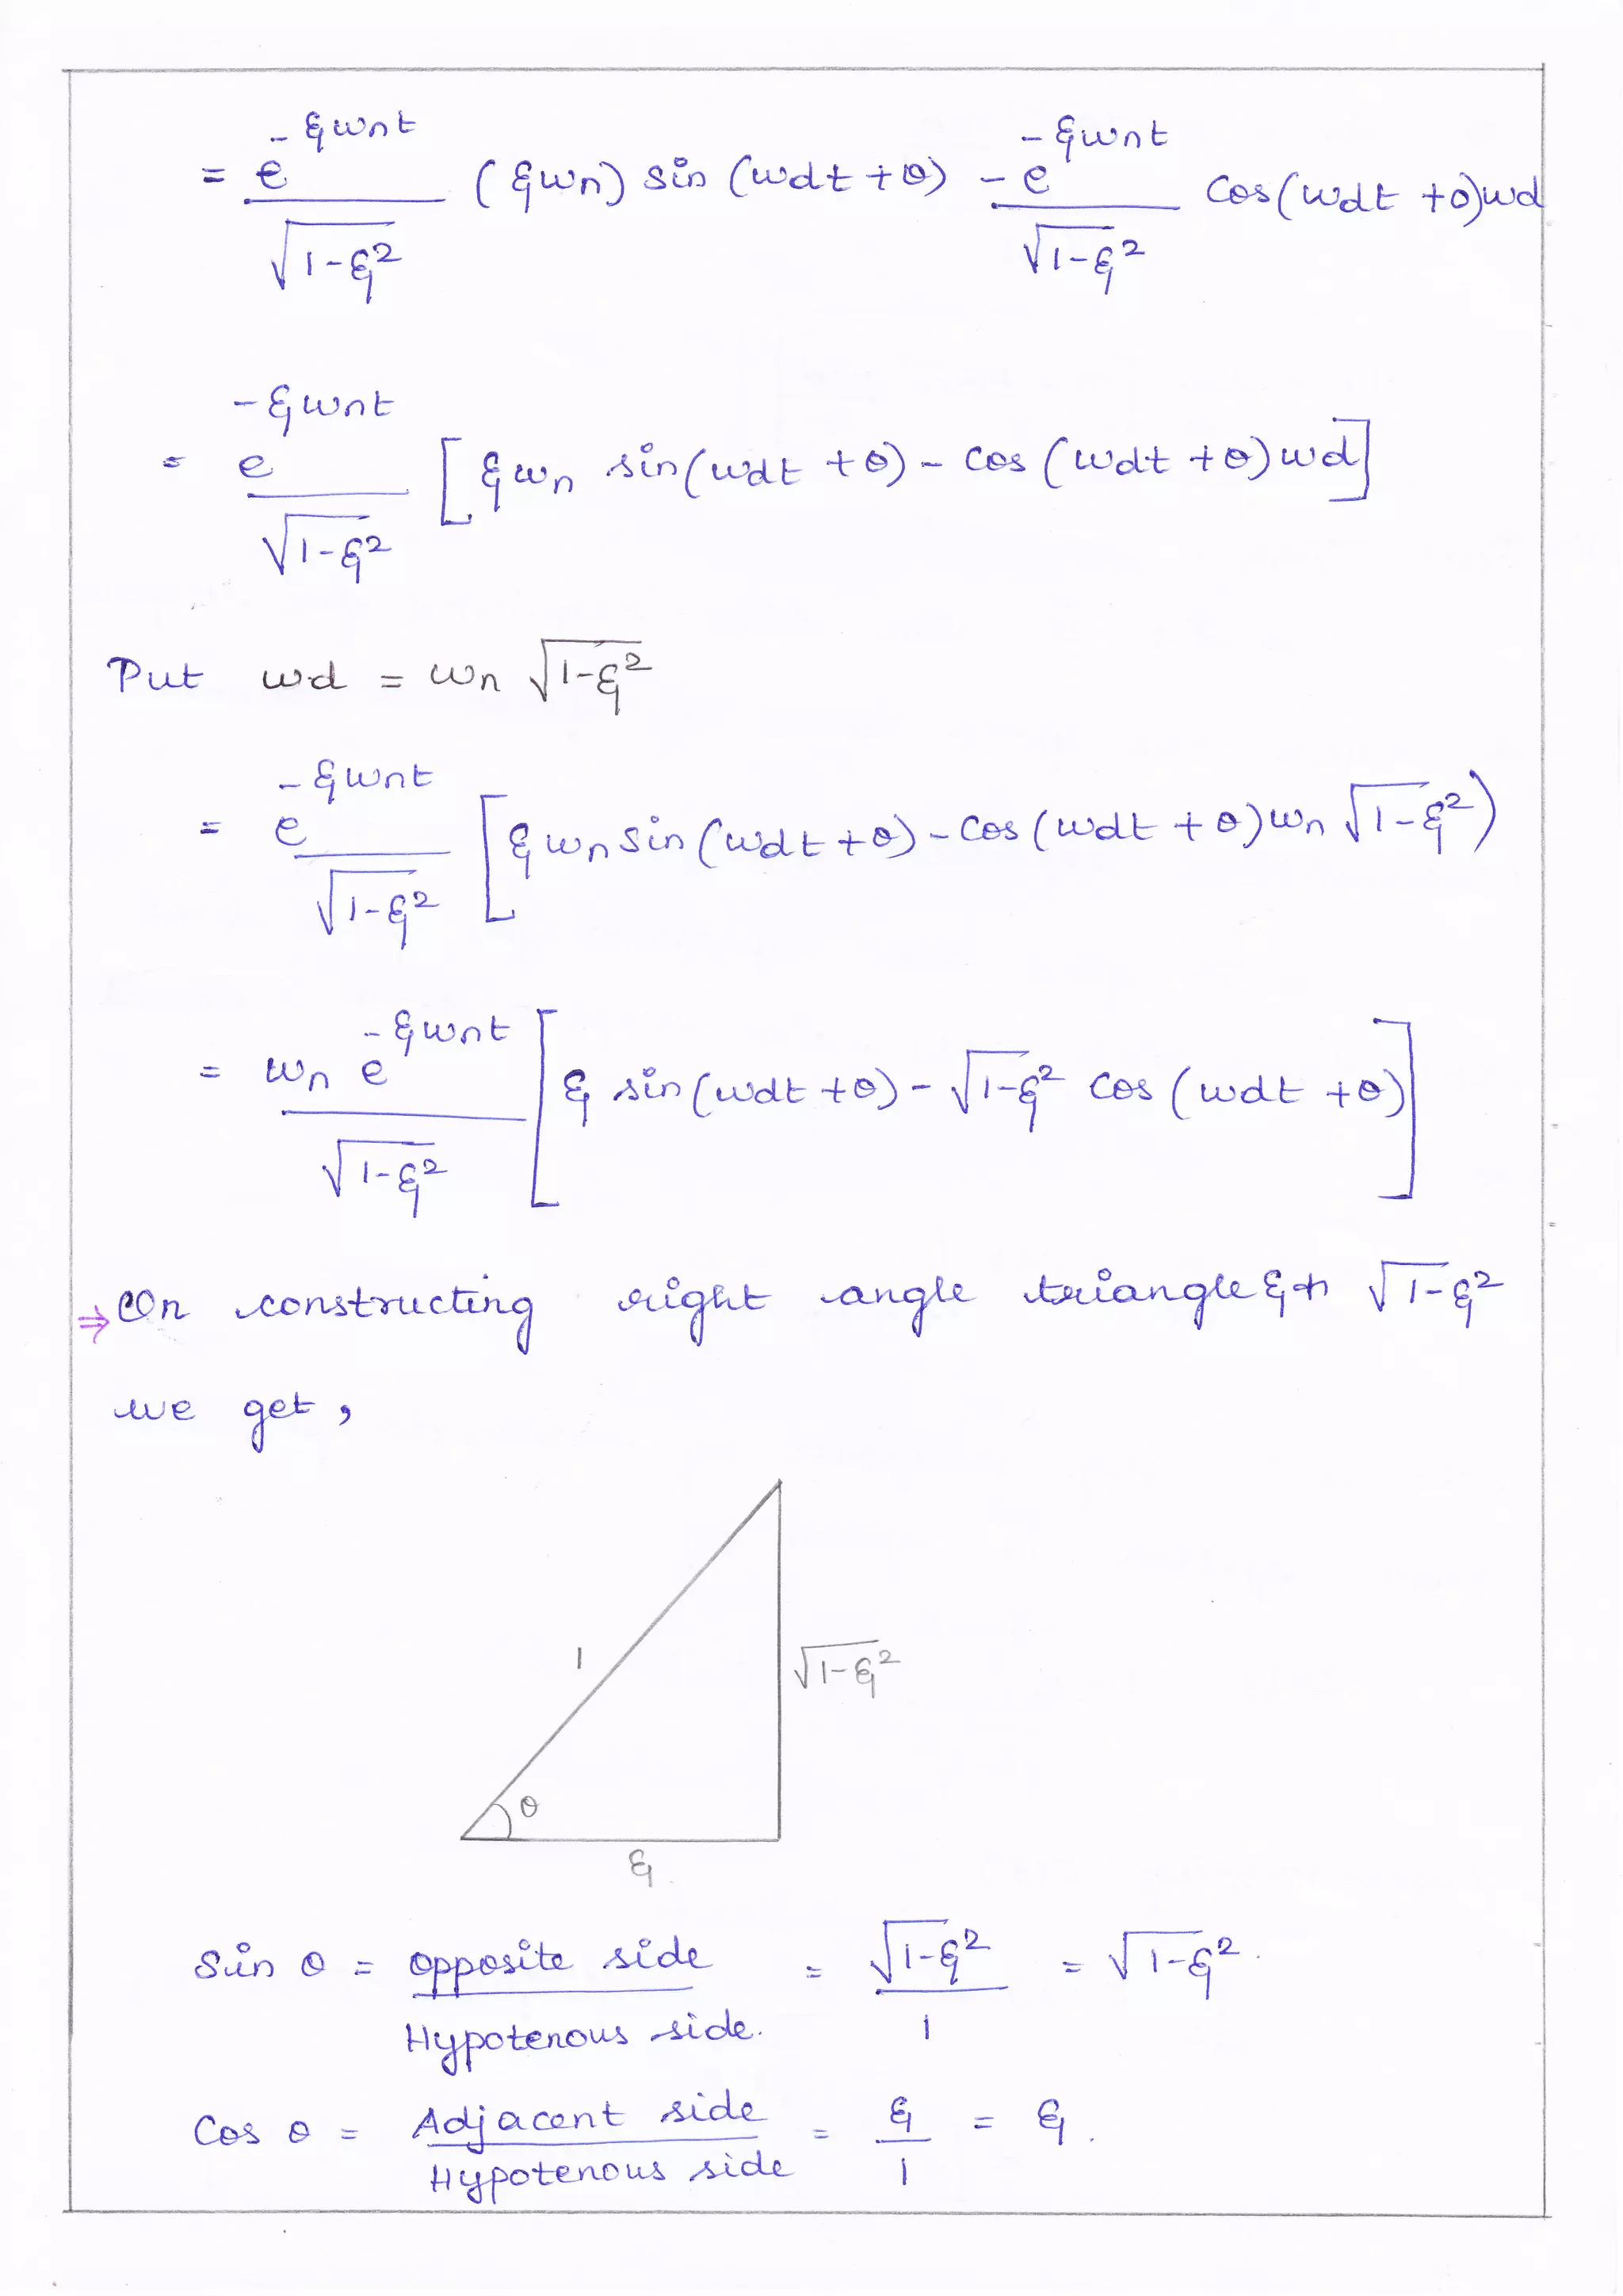 = e^{-ξωnt}/√1-ξ² (ξωn) sin (ωdt + θ) - e^{-ξωnt}/√1-ξ² Cos(ωdt + θ)ωd
= e^{-ξωnt}/√1-ξ² [ξωn sin(ωdt + θ) - cos (ωdt + θ) ωd]
Put ωd = ωn √1-ξ²
= e^{-ξωnt}/√1-ξ² [ξωn sin (ωdt + θ) - cos (ωdt + θ) ωn √1-ξ²)
= ωn e^{-ξωnt}/√1-ξ² [ξ sin (ωdt + θ) - √1-ξ² cos (ωdt + θ)]
⇒ On constructing right angle triangle ξ √1-ξ²
we get,
1
√1-ξ²
θ
ξ
Sin θ = opposite side/Hypotenous side. = √1-ξ²/1 = √1-ξ².
Cos θ = Adjacent side/Hypotenous side = ξ/1 = ξ.